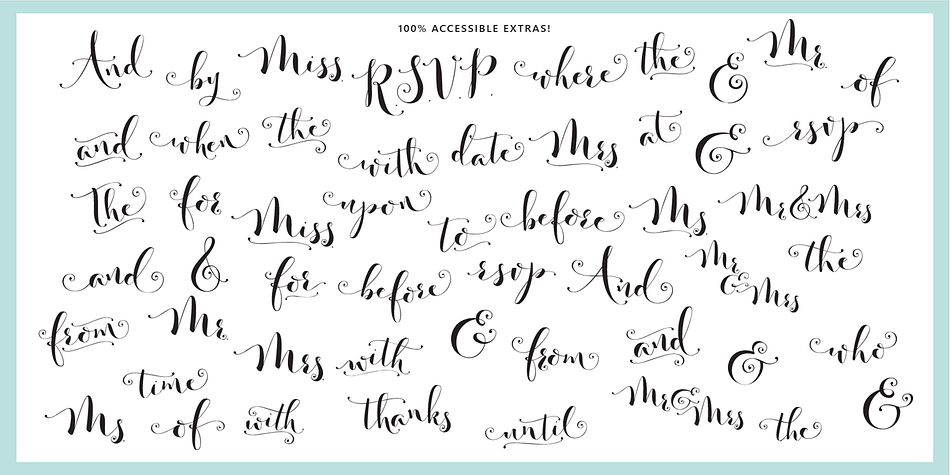 100% ACCESSIBLE EXTRAS!
And by Miss R.S.V.P. where the & Mr. of
and when the with date Mrs at & rsvp
The for Miss upon to before Ms Mr&Mrs
and & for before rsvp And Mr & Mrs the
from Mr. Mrs with & from and & who
time
Ms of with thanks until Mr & Mrs the &